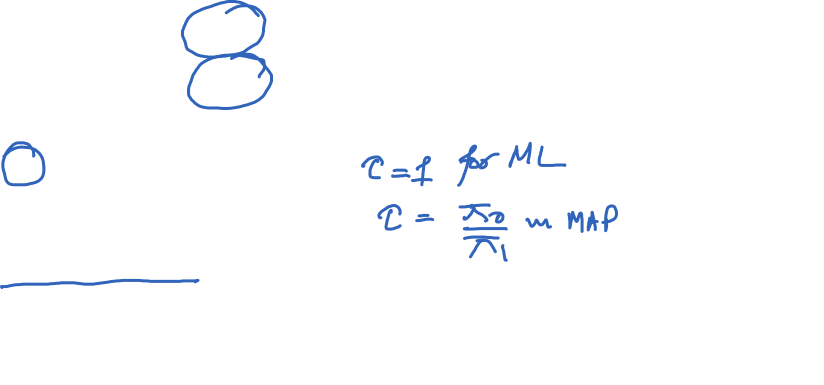 τ = 1 for ML
τ = π₀/π₁ in MAP